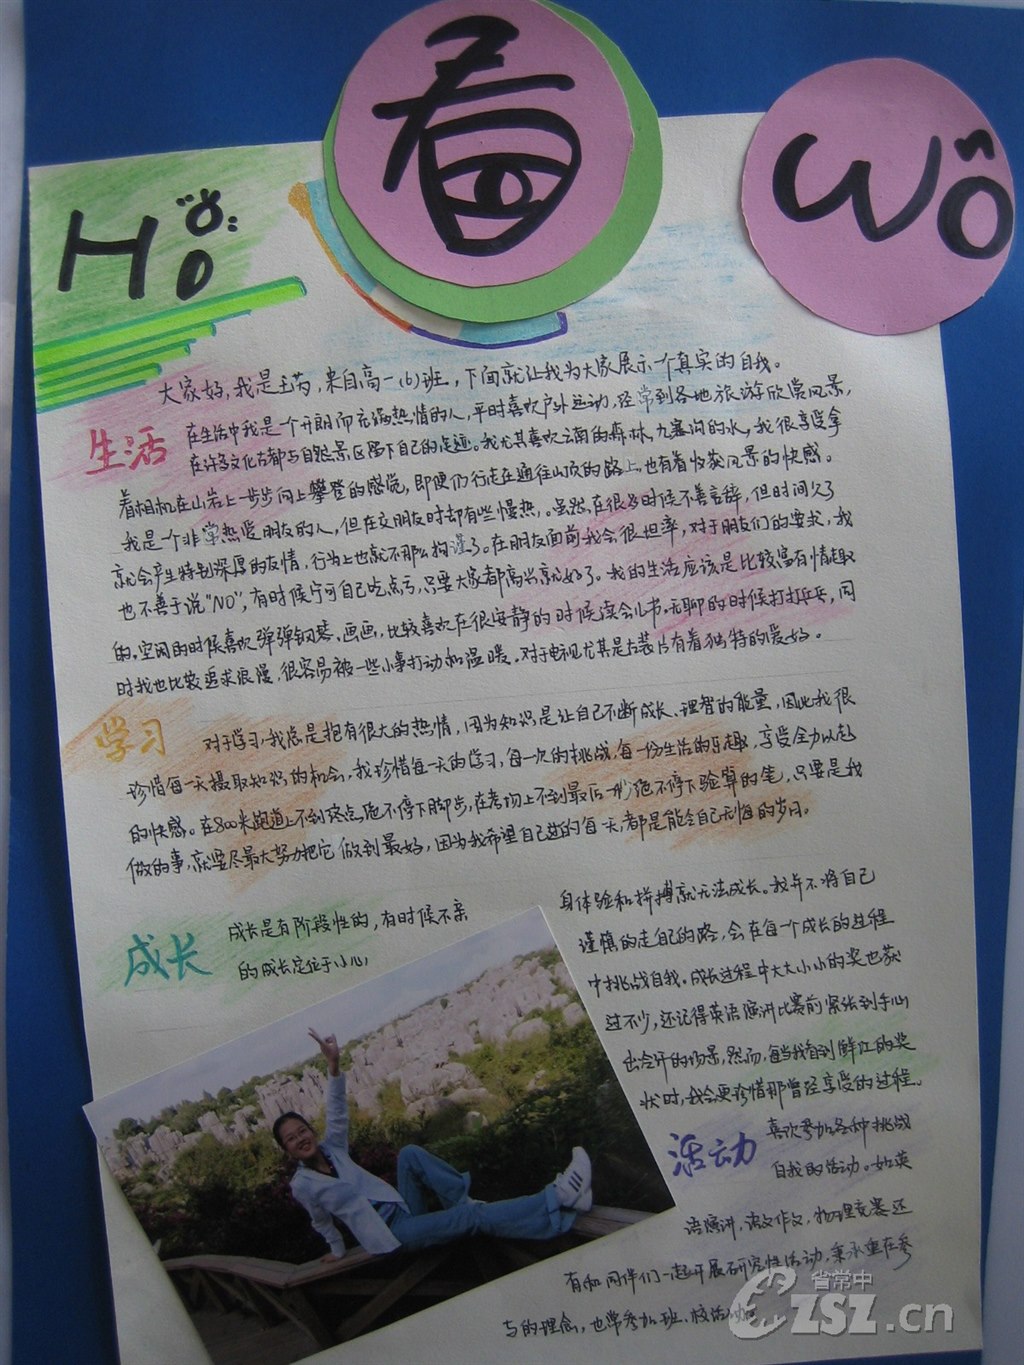 Ho
看
wô
大家好,我是王芮,来自高一(6)班,下面就让我为大家展示一个真实的自我。
生活
在生活中我是一个开朗而充满热情的人,平时喜欢户外运动,经常到各地旅游欣赏风景,
在许多文化古都与自然景区留下自己的足迹。我尤其喜欢云南的森林,九寨沟的水,我很享受拿
着相机在山岩上一步步向上攀登的感觉,即便仍行走在通往山顶的路上,也有着收获风景的快感。
我是个非常热爱朋友的人,但在交朋友时却有些慢热,虽然,在很多时候不善言辞,但时间久了
就会产生特别深厚的友情,行为上也就不那么拘谨了。在朋友面前我会很坦率,对于朋友们的要求,我
也不善于说"NO",有时候宁可自己吃点亏,只要大家都高兴就好了。我的生活应该是比较富有情趣
的,空闲的时候喜欢弹弹钢琴、画画,比较喜欢在很安静的时候读会儿书,无聊的时候打打乒乓,同
时我也比较追求浪漫,很容易被一些小事打动和温暖。对于电视尤其是古装片有着独特的爱好。
学习
对于学习,我总是抱有很大的热情,因为知识是让自己不断成长、理智的能量,因此我很
珍惜每一天摄取知识的机会,我珍惜每一天的学习,每一次的挑战,每一份生活的乐趣,享受全力以赴
的快感。在800米跑道上不到终点绝不停下脚步,在考场上不到最后一秒绝不停下验算的笔,只要是我
做的事,就要尽最大努力把它做到最好,因为我希望自己过的每一天都是能令自己无悔的岁月。
成长
成长是有阶段性的,有时候不亲
身体验和拼搏就无法成长。我并不将自己
的成长定位于小心
谨慎的走自己的路,会在每一个成长的过程
中挑战自我。成长过程中大大小小的奖也获
过不少,还记得英语演讲比赛前紧张到手心
出冷汗的场景,然而,每当我看到鲜红的奖
状时,我会更珍惜那曾经享受的过程。
活动
喜欢参加各种挑战
自我的活动。如英
语演讲,语文作文,物理竞赛还
有和同伴们一起开展研究性活动,秉承重在参
与的理念,也常参加班、校活动
省常中
CZSZ.cn